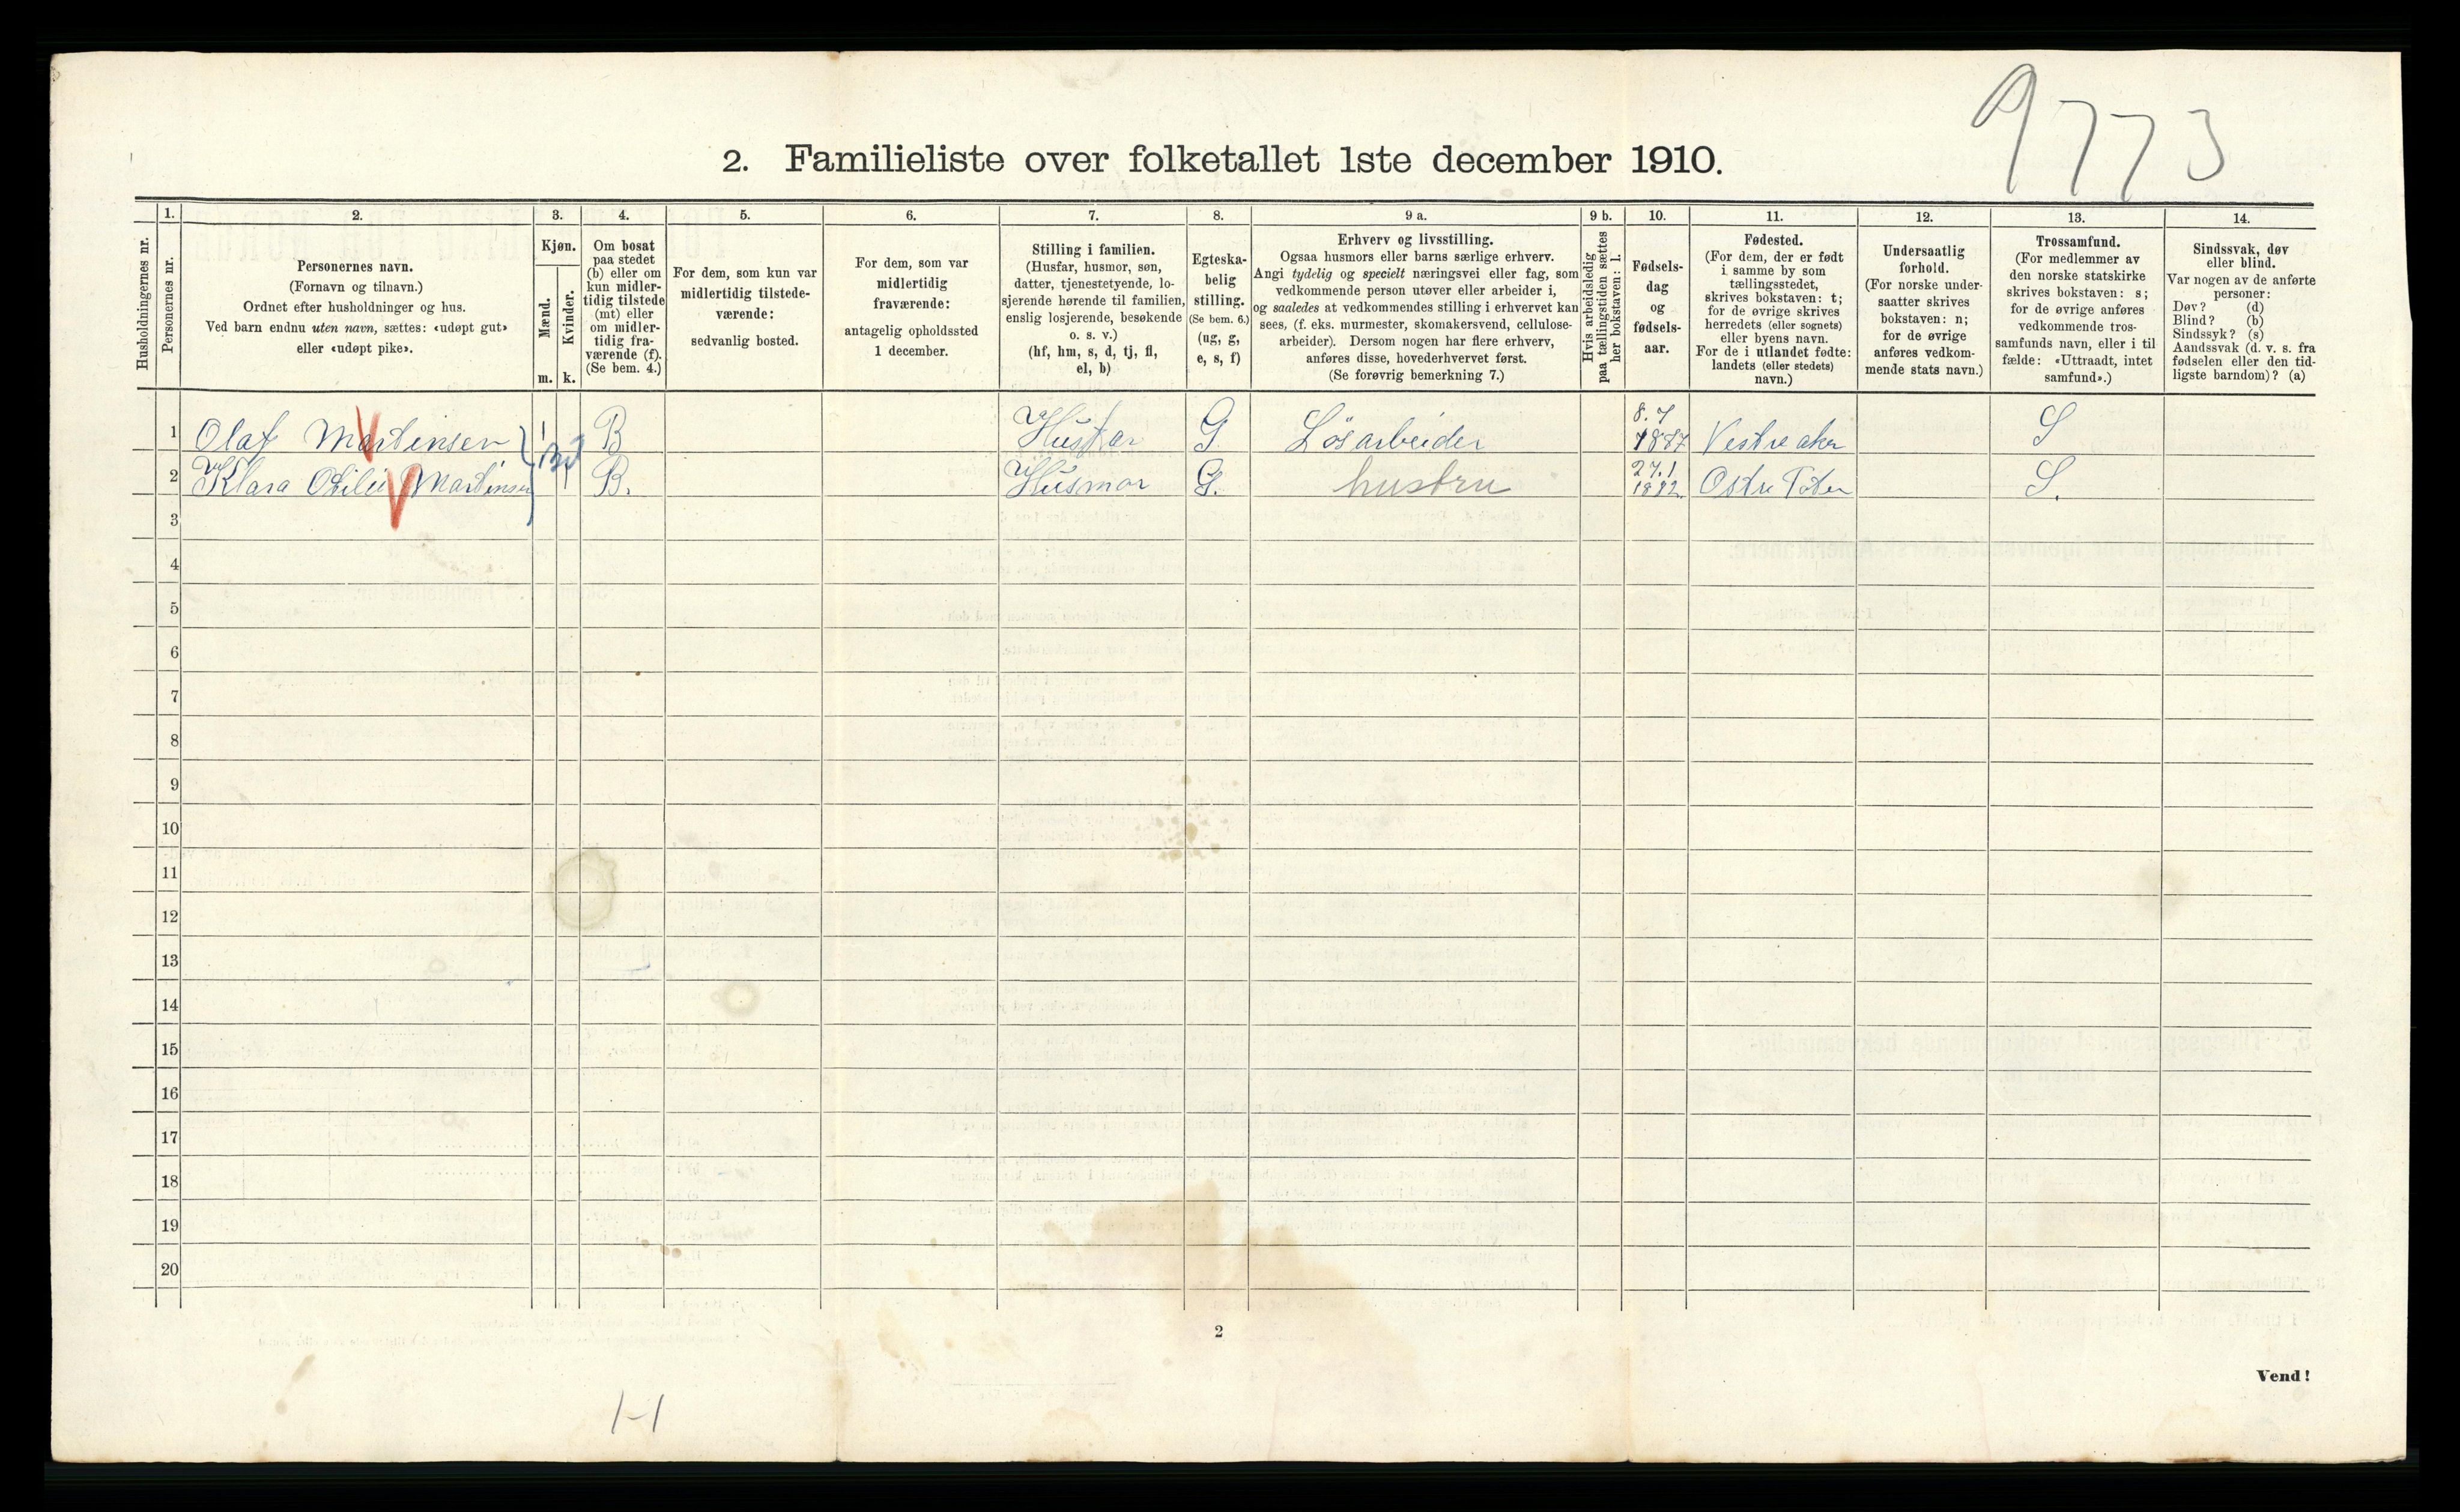 9773
2. Familieliste over folketallet 1ste december 1910.
Husholdningernes nr.
1.
Personernes nr.
2.
Personernes navn.
(Fornavn og tilnavn.)
Ordnet efter husholdninger og hus.
Ved barn endnu uten navn, sættes: «udøpt gut»
eller «udøpt pike».
3.
Kjøn.
Mænd.
Kvinder.
m. k.
4.
Om bosat
paa stedet
(b) eller om
kun midler-
tidig tilstede
(mt) eller
om midler-
tidig fra-
værende (f).
(Se bem. 4.)
5.
For dem, som kun var
midlertidig tilstede-
værende:
sedvanlig bosted.
6.
For dem, som var
midlertidig
fraværende:
antagelig opholdssted
1 december.
7.
Stilling i familien.
(Husfar, husmor, søn,
datter, tjenestetyende, lo-
sjerende hørende til familien,
enslig losjerende, besøkende
o. s. v.)
(hf, hm, s, d, tj, fl,
el, b)
8.
Egteska-
belig
stilling.
(Se bem. 6.)
(ug, g,
e, s, f)
9 a.
Erhverv og livsstilling.
Ogsaa husmors eller barns særlige erhverv.
Angi tydelig og specielt næringsvei eller fag, som
vedkommende person utøver eller arbeider i,
og saaledes at vedkommendes stilling i erhvervet kan
sees, (f. eks. murmester, skomakersvend, cellulose-
arbeider). Dersom nogen har flere erhverv,
anføres disse, hovederhvervet først.
(Se forøvrig bemerkning 7.)
9 b.
Hvis arbeidsledig
paa tællingstiden sættes
her bokstaven: l.
10.
Fødsels-
dag
og
fødsels-
aar.
11.
Fødested.
(For dem, der er født
i samme by som
tællingsstedet,
skrives bokstaven: t;
for de øvrige skrives
herredets (eller sognets)
eller byens navn.
For de i utlandet fødte:
landets (eller stedets)
navn.)
12.
Undersaatlig
forhold.
(For norske under-
saatter skrives
bokstaven: n;
for de øvrige
anføres vedkom-
mende stats navn.)
13.
Trossamfund.
(For medlemmer av
den norske statskirke
skrives bokstaven: s;
for de øvrige anføres
vedkommende tros-
samfunds navn, eller i til
fælde: «Uttraadt, intet
samfund».)
14.
Sindssvak, døv
eller blind.
Var nogen av de anførte
personer:
Døv? (d)
Blind? (b)
Sindssyk? (s)
Aandssvak (d. v. s. fra
fødselen eller den tid-
ligste barndom)? (a)
1 Olaf Martinsen 1 B Husfar G Lösarbeider 8.7 1887 Vestre aker S
2 Klara Otilie Martinsen 1 B. Husmor G. hustru 27.1 1892. Ostre Toten S.
3
4
5
6
7
8
9
10
11
12
13
14
15
16
17
18
19
20
2
Vend!
1-1